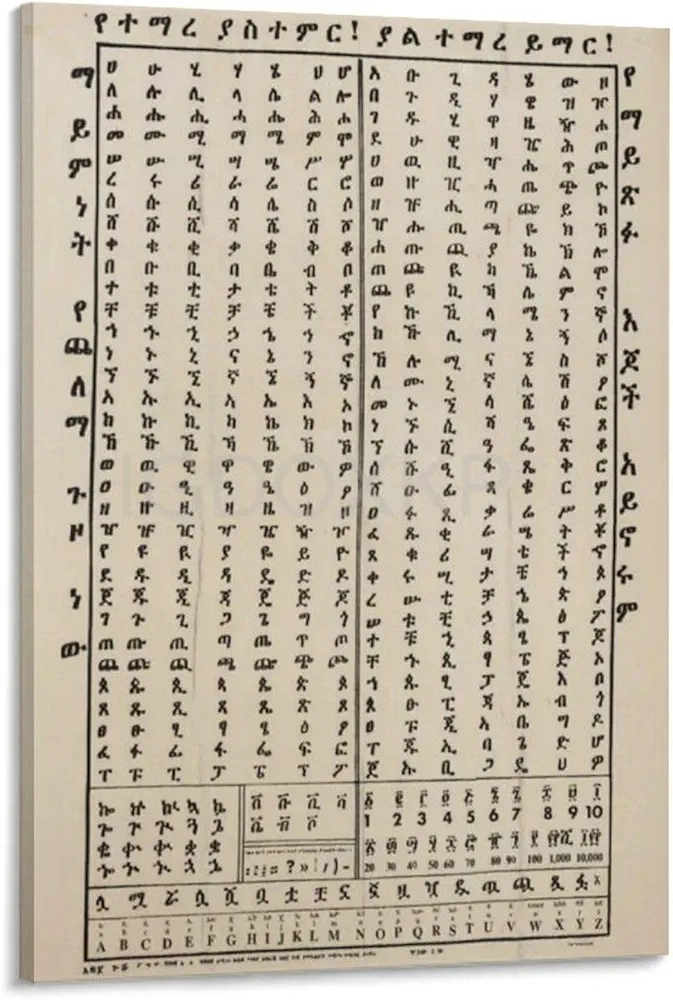 የተማረ ያስተምር! ያል ተማረ ይማር!
ማይምነት የጨለማ ጉዞ ነው
ሀ ሁ ሂ ሃ ሄ ህ ሆ
ለ ሉ ሊ ላ ሌ ል ሎ
ሐ ሑ ሒ ሓ ሔ ሕ ሖ
መ ሙ ሚ ማ ሜ ም ሞ
ሠ ሡ ሢ ሣ ሤ ሥ ሦ
ረ ሩ ሪ ራ ሬ ር ሮ
ሰ ሱ ሲ ሳ ሴ ስ ሶ
ሸ ሹ ሺ ሻ ሼ ሽ ሾ
ቀ ቁ ቂ ቃ ቄ ቅ ቆ
በ ቡ ቢ ባ ቤ ብ ቦ
ተ ቱ ቲ ታ ቴ ት ቶ
ቸ ቹ ቺ ቻ ቼ ች ቾ
ኀ ኁ ኂ ኃ ኄ ኅ ኆ
ነ ኑ ኒ ና ኔ ን ኖ
ኘ ኙ ኚ ኛ ኜ ኝ ኞ
አ ኡ ኢ ኣ ኤ እ ኦ
ከ ኩ ኪ ካ ኬ ክ ኮ
ኸ ኹ ኺ ኻ ኼ ኽ ኾ
ወ ዉ ዊ ዋ ዌ ው ዎ
ዐ ዑ ዒ ዓ ዔ ዕ ዖ
ዘ ዙ ዚ ዛ ዜ ዝ ዞ
ዠ ዡ ዢ ዣ ዤ ዥ ዦ
የ ዩ ዪ ያ ዬ ይ ዮ
ደ ዱ ዲ ዳ ዴ ድ ዶ
ጀ ጁ ጂ ጃ ጄ ጅ ጆ
ገ ጉ ጊ ጋ ጌ ግ ጎ
ጠ ጡ ጢ ጣ ጤ ጥ ጦ
ጨ ጩ ጪ ጫ ጬ ጭ ጮ
ጰ ጱ ጲ ጳ ጴ ጵ ጶ
ጸ ጹ ጺ ጻ ጼ ጽ ጾ
ፀ ፁ ፂ ፃ ፄ ፅ ፆ
ፈ ፉ ፊ ፋ ፌ ፍ ፎ
ፐ ፑ ፒ ፓ ፔ ፕ ፖ
አ ቡ ጊ ዳ ሄ ው ዞ
በ ጉ ዲ ሃ ዌ ዝ ዦ
ገ ዱ ሂ ዋ ዜ ዥ ሖ
ደ ሁ ዊ ዛ ዤ ሕ ጦ
ሀ ዉ ዚ ዣ ሔ ጥ ጮ
ወ ዙ ዢ ሓ ጤ ጭ ዮ
ዘ ዡ ሒ ጣ ጬ ይ ኮ
ዠ ሑ ጢ ጫ ዬ ክ ኾ
ሐ ጡ ጪ ያ ኬ ኽ ሎ
ጠ ጩ ዪ ካ ኼ ል ሞ
ጨ ዩ ኪ ኻ ሌ ም ኖ
የ ኩ ኺ ላ ሜ ን ኞ
ከ ኹ ሊ ማ ኔ ኝ ሶ
ኸ ሉ ሚ ና ኜ ስ ሾ
ለ ሙ ኒ ኛ ሴ ሽ ዖ
መ ኑ ኚ ሳ ሼ ዕ ፎ
ነ ኙ ሲ ሻ ዔ ፍ ጾ
ኘ ሱ ሺ ዓ ፌ ጽ ቆ
ሰ ሹ ዒ ፋ ጼ ቅ ሮ
ሸ ዑ ፊ ጻ ቄ ር ሦ
ዐ ፉ ጺ ቃ ሬ ሥ ቶ
ፈ ጹ ቂ ራ ሤ ት ቾ
ጸ ቁ ሪ ሣ ቴ ች ኆ
ቀ ሩ ሢ ታ ቼ ኅ ጶ
ረ ሡ ቲ ቻ ኄ ጵ ፆ
ሠ ቱ ቺ ኃ ጴ ፅ ፖ
ተ ቹ ኂ ጳ ፄ ፕ ጆ
ቸ ኁ ጲ ፃ ፔ ጅ ኦ
ኀ ጱ ፂ ፓ ጄ እ ቦ
ጰ ፁ ፒ ጃ ኤ ብ ጎ
ፀ ፑ ጂ ኣ ቤ ግ ዶ
ፐ ጁ ኢ ባ ጌ ድ ሆ
ጀ ኡ ቢ ጋ ዴ ህ ዎ
የማይጽፉ እጆች አይኖሩም
ኰ ኵ ኲ ኳ ኴ
ጐ ጕ ጒ ጓ ጔ
ቈ ቍ ቊ ቋ ቌ
ኈ ኍ ኊ ኋ ኌ
ቨ ቩ ቪ ቫ
ቬ ቭ ቮ
፩ ፪ ፫ ፬ ፭ ፮ ፯ ፰ ፱ ፲
1 2 3 4 5 6 7 8 9 10
፳ ፴ ፵ ፶ ፷ ፸ ፹ ፺ ፻ ፲፻ ፼
20 30 40 50 60 70 80 90 100 1,000 10,000
ሏ ሟ ሯ ሷ ሿ ቧ ቷ ቿ ኗ ኟ ዟ ዧ ዷ ጧ ጯ ጿ ፏ
A B C D E F G H I J K L M N O P Q R S T U V W X Y Z
IGDOXKP